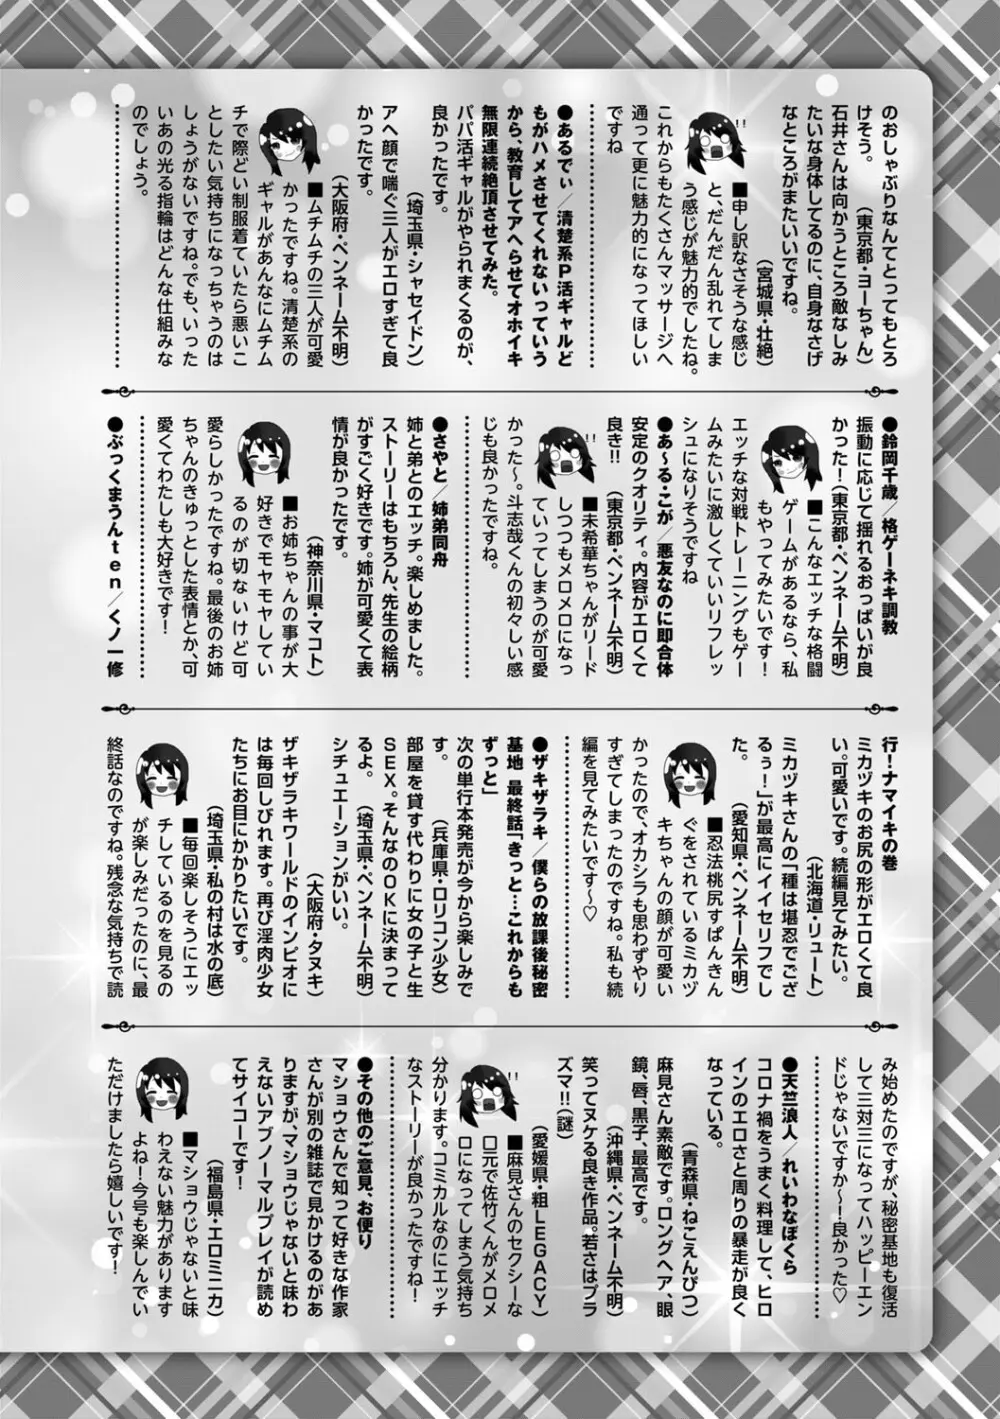 のおしゃぶりなんてとってもとろ
けそう。　（東京都・ヨーちゃん）
石井さんは向かうところ敵なしみ
たいな身体してるのに、自身なさげ
なところがまたいいですね。
（宮城県・壮絶）
■申し訳なさそうな感じ
と、だんだん乱れてしま
う感じが魅力的でしたね。
これからもたくさんマッサージへ
通って更に魅力的になってほしい
ですね
●あるでぃ／清楚系Ｐ活ギャルど
もがハメさせてくれないっていう
から、教育してアヘらせてオホイキ
無限連続絶頂させてみた。
パパ活ギャルがやられまくるのが、
良かったです。
（埼玉県・シャセイドン）
アヘ顔で喘ぐ三人がエロすぎて良
かったです。
（大阪府・ペンネーム不明）
■ムチムチの三人が可愛
かったですね。清楚系の
ギャルがあんなにムチム
チで際どい制服着ていたら悪いこ
としたい気持ちになっちゃうのは
しょうがないですね。でも、いった
いあの光る指輪はどんな仕組みな
のでしょう。
●鈴岡千歳／格ゲーネキ調教
振動に応じて揺れるおっぱいが良
かった！（東京都・ペンネーム不明）
■こんなエッチな格闘
ゲームがあるなら、私
もやってみたいです！
エッチな対戦トレーニングもゲー
ムみたいに激しくていいリフレッ
シュになりそうですね
●あ～る・こが／悪友なのに即合体
安定のクオリティ。内容がエロくて
良き!!　（東京都・ペンネーム不明）
■未希華ちゃんがリード
しつつもメロメロになっ
ていってしまうのが可愛
かった～。斗志哉くんの初々しい感
じも良かったですね。
●さやと／姉弟同舟
姉と弟とのエッチ。楽しめました。
ストーリーはもちろん、先生の絵柄
がすごく好きです。姉が可愛くて表
情が良かったです。
（神奈川県・マコト）
■お姉ちゃんの事が大
好きでモヤモヤしてい
るのが切ないけど可
愛らしかったですね。最後のお姉
ちゃんのきゅっとした表情とか、可
愛くてわたしも大好きです！
●ぶっくまうんｔｅｎ／くノ一修
行！ナマイキの巻
ミカヅキのお尻の形がエロくて良
い。可愛いです。続編見てみたい。
（北海道・リュート）
ミカヅキさんの「種は堪忍でござ
るぅ！」が最高にイイセリフでし
た。　（愛知県・ペンネーム不明）
■忍法桃尻すぱんきん
ぐをされているミカヅ
キちゃんの顔が可愛い
かったので、オカシラも思わずやり
すぎてしまったのですね。私も続
編を見てみたいです～♡
●ザキザラキ／僕らの放課後秘密
基地 最終話「きっと…これからも
ずっと」
次の単行本発売が今から楽しみで
す。　（兵庫県・ロリコン少女）
部屋を貸す代わりに女の子と生
ＳＥＸ。そんなのＯＫに決まって
るよ。　（埼玉県・ペンネーム不明）
シチュエーションがいい。
（大阪府・タヌキ）
ザキザラキワールドのインピオに
は毎回しびれます。再び淫肉少女
たちにお目にかかりたいです。
（埼玉県・私の村は水の底）
■毎回楽しそうにエッ
チしているのを見るの
が楽しみだったのに、最
終話なのですね。残念な気持ちで読
み始めたのですが、秘密基地も復活
して三対三になってハッピーエン
ドじゃないですか～！良かった♡
●天竺浪人／れいわなぼくら
コロナ禍をうまく料理して、ヒロ
インのエロさと周りの暴走が良く
なっている。
（青森県・ねこえんぴつ）
麻見さん素敵です。ロングヘア、眼
鏡、唇、黒子、最高です。
（沖縄県・ペンネーム不明）
笑ってヌケる良き作品。若さはプラ
ズマ!!（謎）
（愛媛県・粗ＬＥＧＡＣＹ）
■麻見さんのセクシーな
口元で佐竹くんがメロメ
ロになってしまう気持ち
分かります。コミカルなのにエッチ
なストーリーが良かったですね！
●その他のご意見、お便り
マショウさんで知って好きな作家
さんが別の雑誌で見かけるのがあ
りますが、マショウじゃないと味わ
えないアブノーマルプレイが読め
てサイコーです！
（福島県・エロミニカ）
■マショウじゃないと味
わえない魅力があります
よね！今号も楽しんでい
ただけましたら嬉しいです！